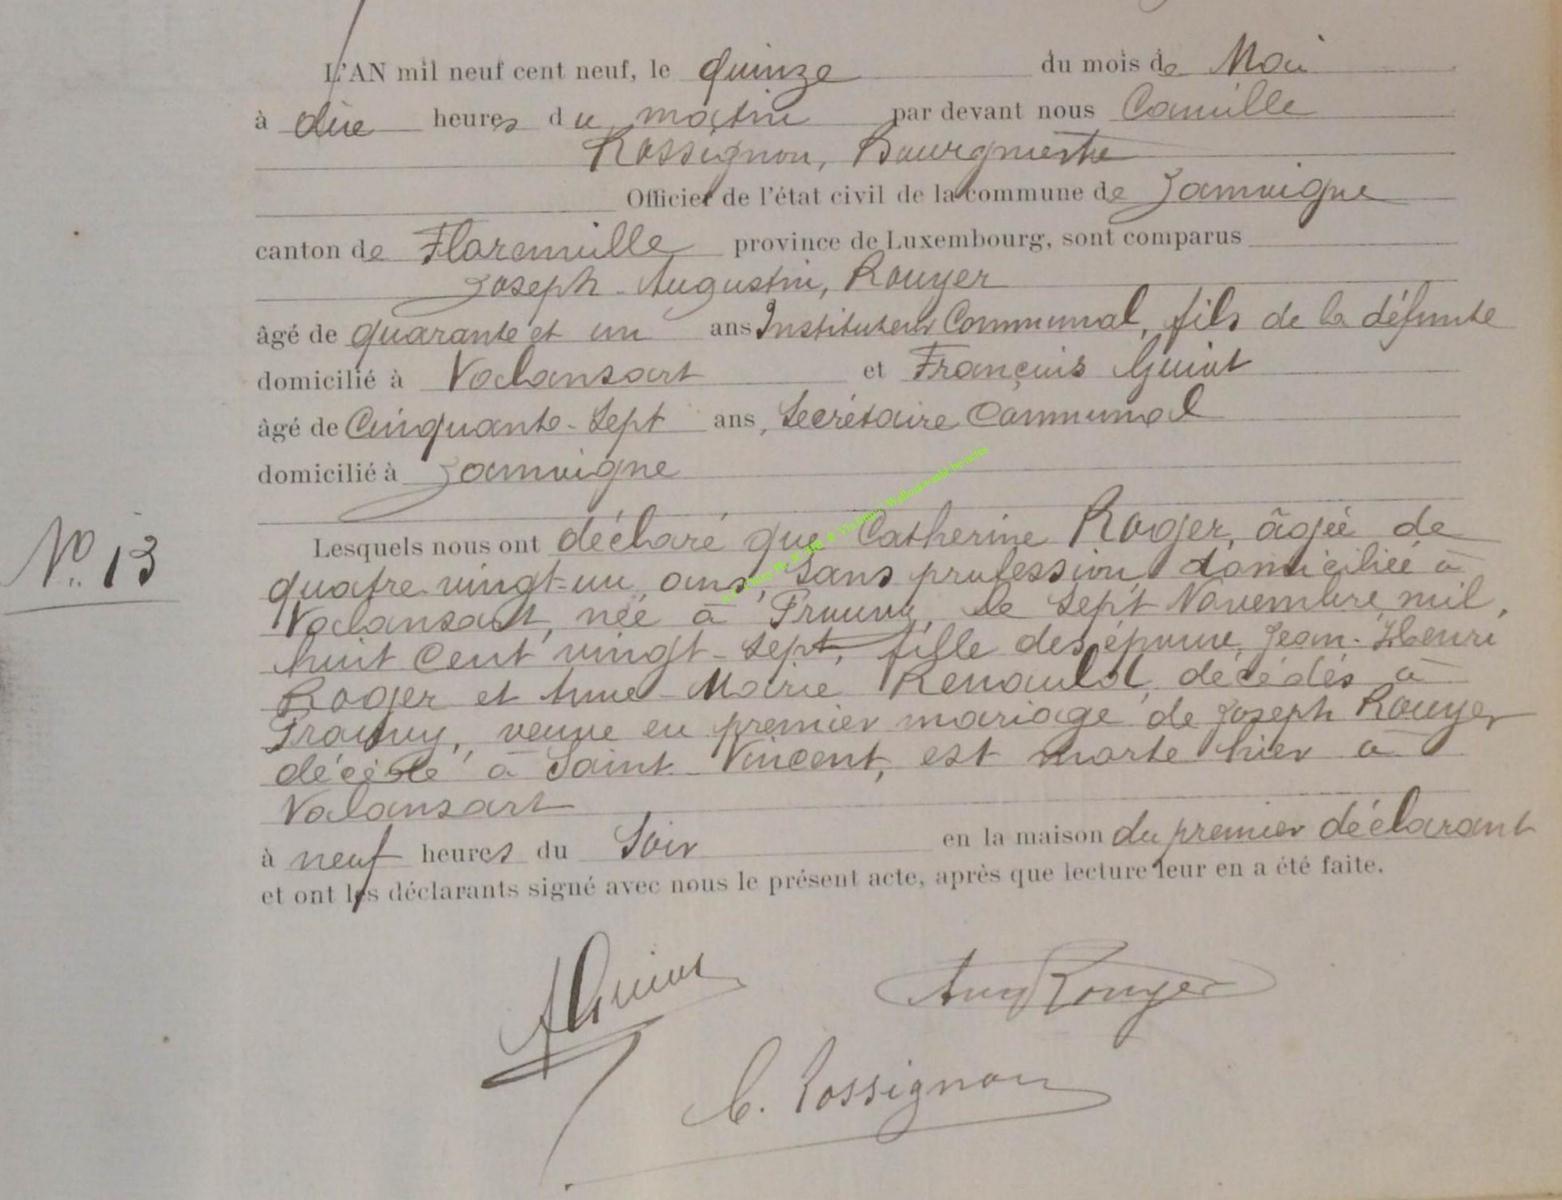 L'AN mil neuf cent neuf, le quinze du mois de Mai
à dix heures du matin par devant nous Camille
Rossignon, Bourgmestre
Officier de l'état civil de la commune de Jamoigne
canton de Florenville province de Luxembourg, sont comparus
Joseph-Augustin, Rouyer
âgé de quarante et un ans Instituteur Communal, fils de la défunte
domicilié à Valansart et François Guiot
âgé de Cinquante-Sept ans, Secrétaire Communal
domicilié à Jamoigne
N° 13
Lesquels nous ont déclaré que Catherine Roger, âgée de
quatre vingt-un ans, Sans profession domiciliée à
Valansart, née à Prouvy, le Sept Novembre mil
huit Cent vingt-Sept, fille des époux Jean-Henri
Roger et Anne-Marie Renauld, décédés à
Prouvy, veuve en premier mariage de Joseph Rouyer
décédé à Saint-Vincent, est morte hier à
Valansart
à neuf heures du Soir en la maison du premier déclarant
et ont les déclarants signé avec nous le présent acte, après que lecture leur en a été faite.
Guiot Aug Rouyer
C. Rossignon